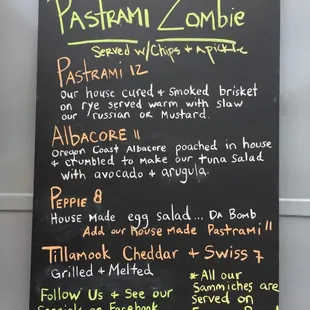 Pastrami Zombie
Served w/Chips + a pickle
Pastrami 12
Our house cured + smoked brisket
on rye served warm with slaw
our russian or mustard.
Albacore 11
Oregon Coast Albacore poached in house
+ crumbled to make our tuna salad
with avocado + arugula.
Peppie 8
House made egg salad... Da Bomb
Add our house made Pastrami 11
Tillamook Cheddar + Swiss 7
Grilled + Melted
*All our
Sammiches are
served on
Follow Us + See our
Specials on Facebook